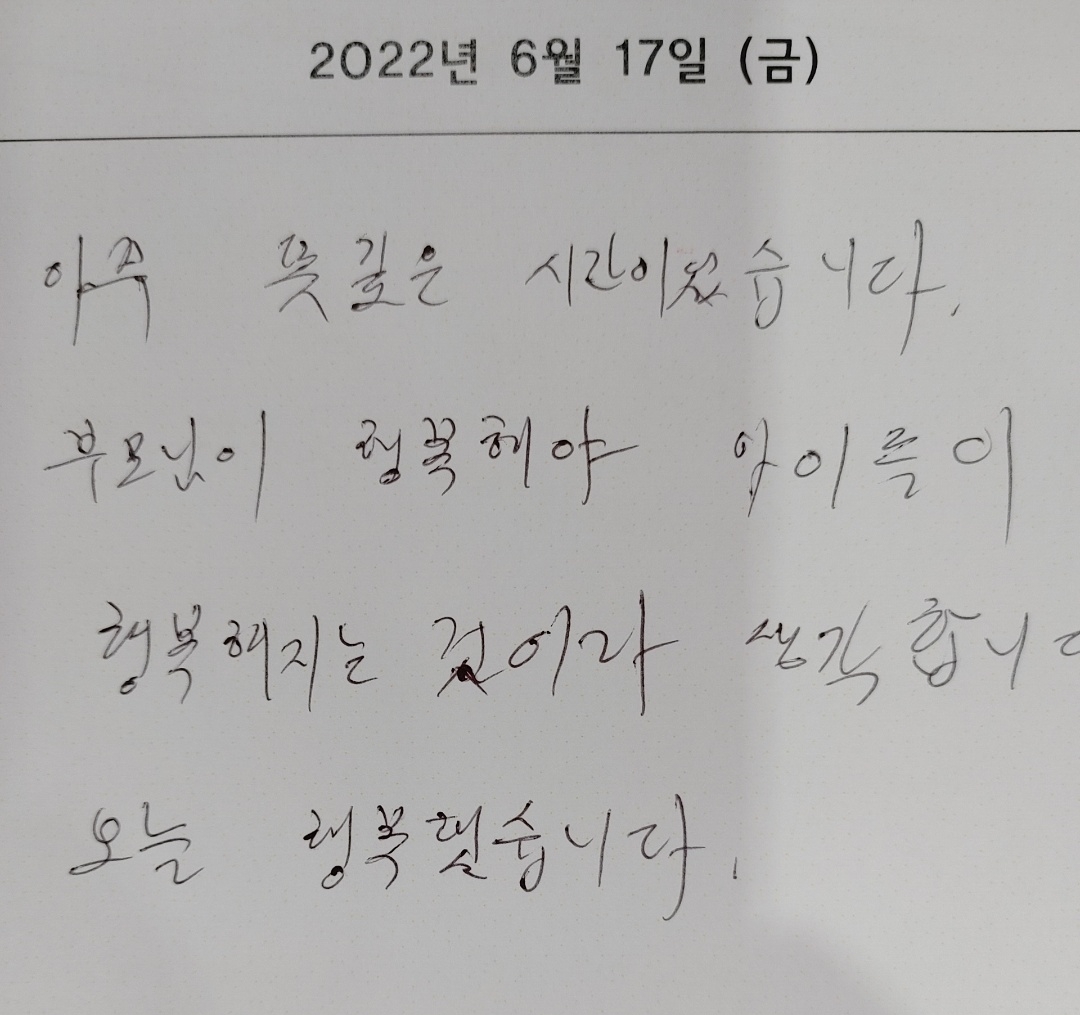 2022년 6월 17일 (금)
아주 뜻깊은 시간이었습니다.
부모님이 행복해야 아이들이
행복해지는 것이라 생각합니다
오늘 행복했습니다.